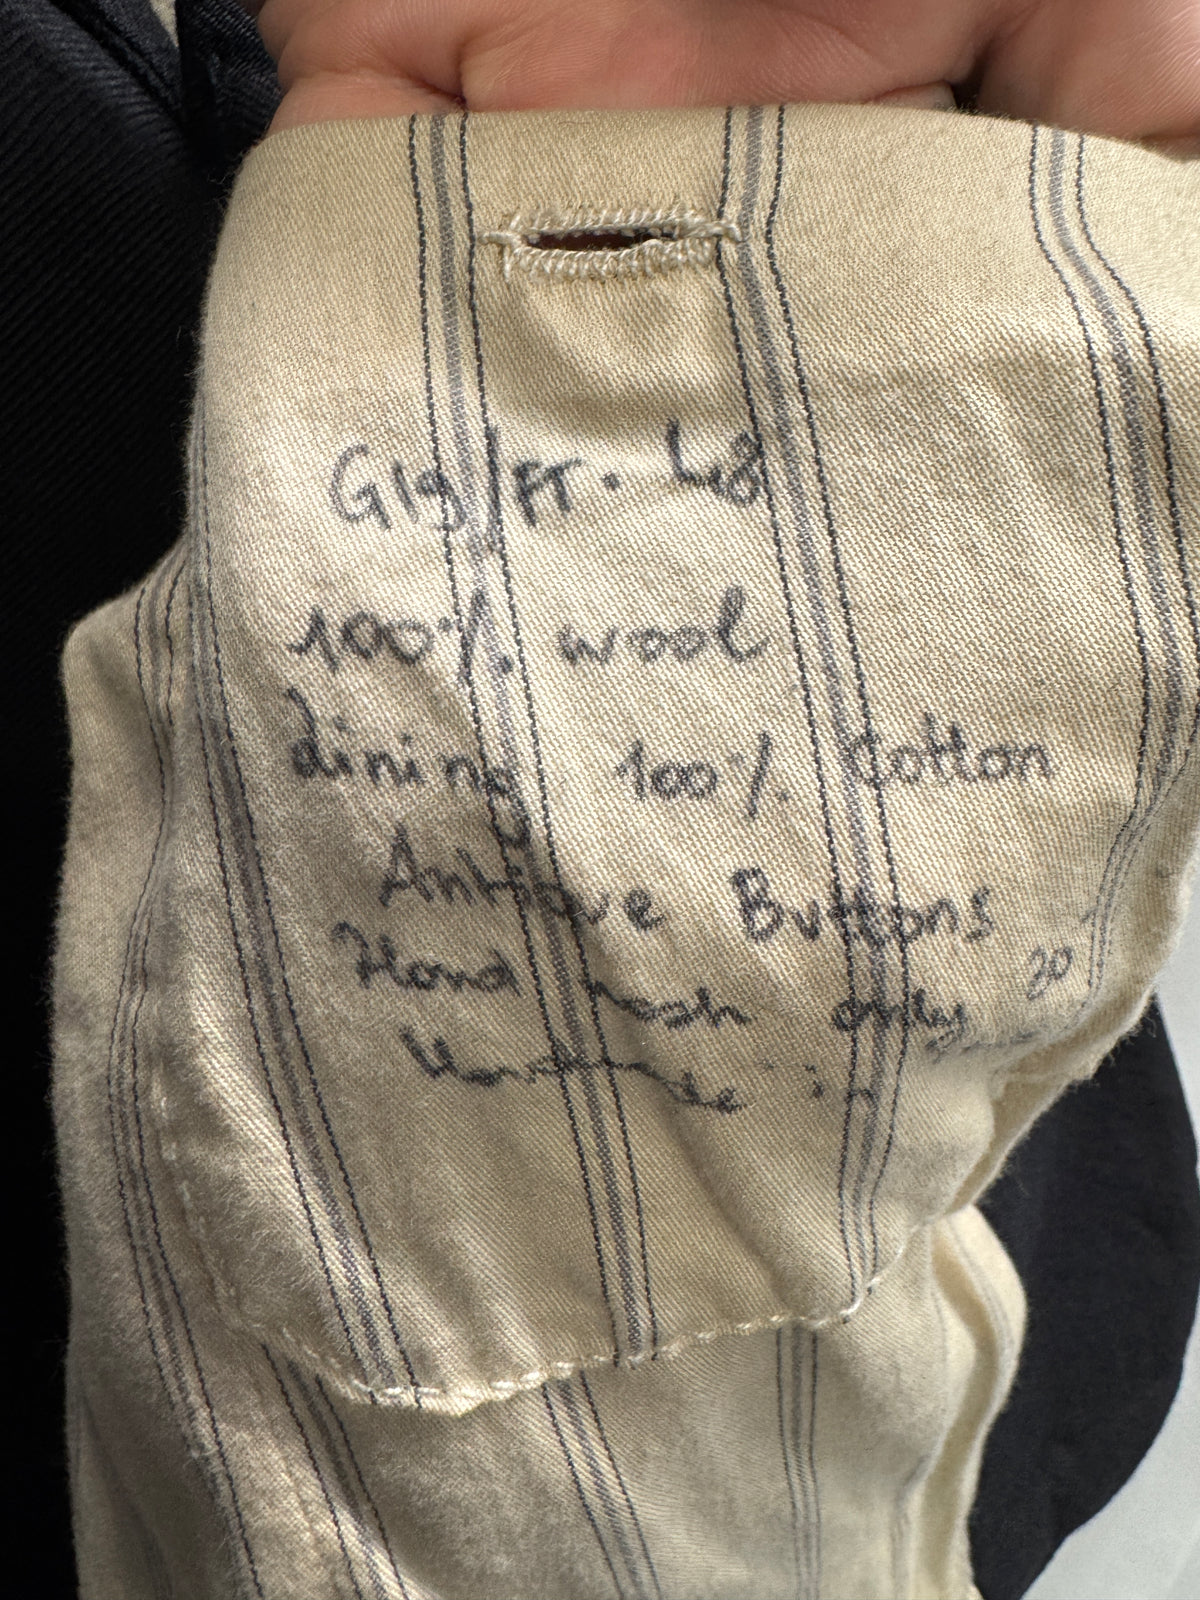 G19/PT. 48
100% wool
Lining 100% Cotton
Antique Buttons
Hand wash only 30°
in